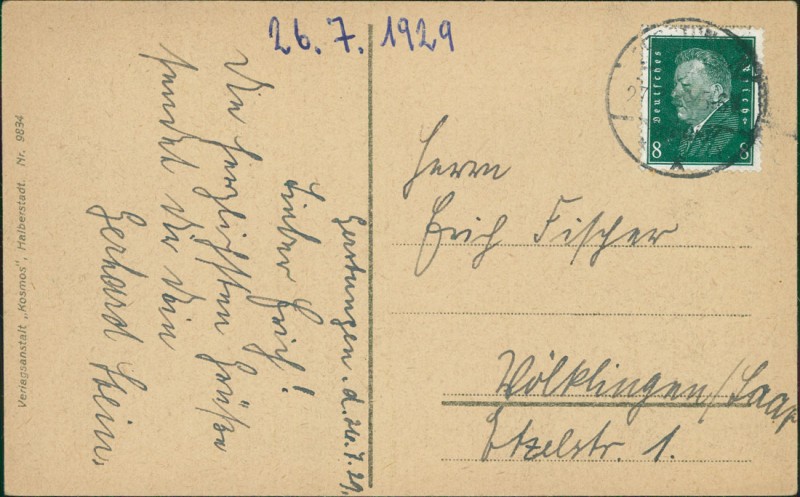 26. 7. 1929
Hartungen. d. 26. 7. 29.
Lieber Erich!
Die herzlichsten Grüße
sendet Dir Dein
Gerhard Stein.
Herrn
Erich Fischer
Völklingen/Saar
Etzelstr. 1.
Deutsches Reich
8 8
Verlagsanstalt „Kosmos", Halberstadt. Nr. 9834